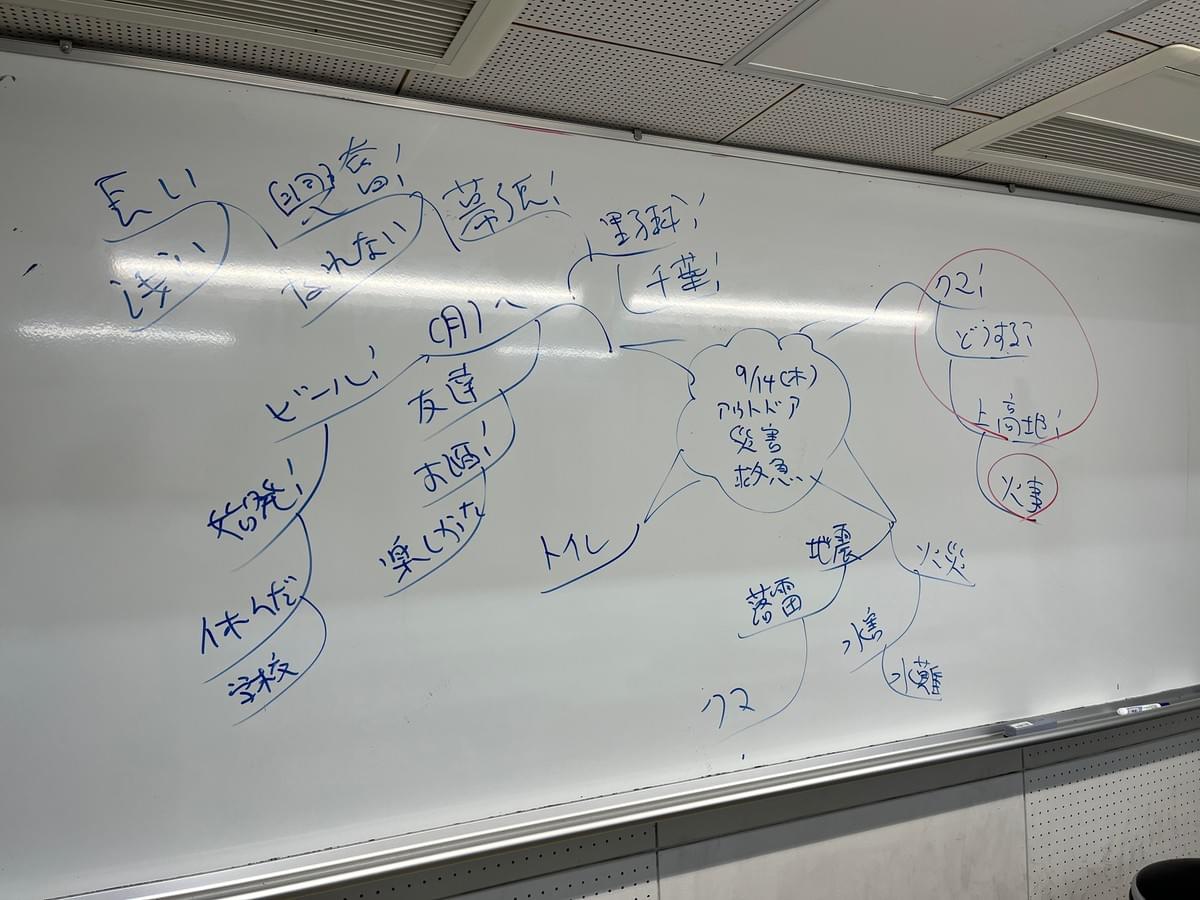 9/14(木)
アウトドア
災害
救急
クマ!
どうする?
上高地!
火事
地震
落雷
クマ
火災
水害
水難
トイレ
千葉!
幕張!
なれない
長い
浅い
(月)へ
友達
お酒!
楽しかった
ビール!
始発!
休んだ
学校